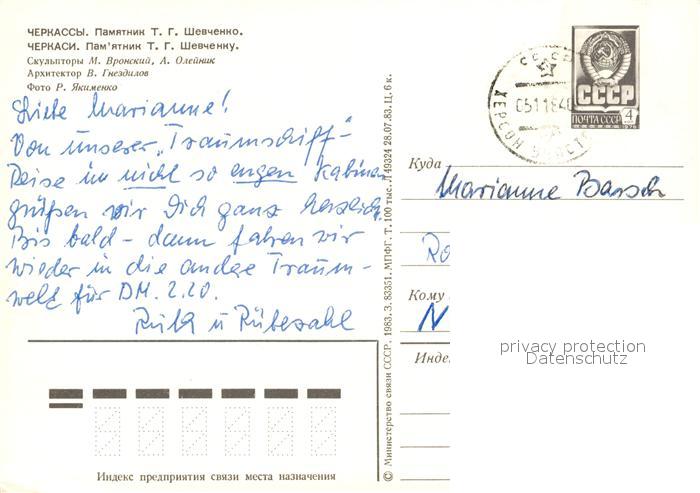 ЧЕРКАССЫ. Памятник Т. Г. Шевченко.
ЧЕРКАСИ. Пам'ятник Т. Г. Шевченку.
Скульпторы М. Вронский, А. Олейник
Архитектор В. Гнездилов
Фото Р. Якименко
Liebe Marianne!
Von unserer „Traumschiff"-
Reise im nicht so engen Kabinen
grüßen wir Dich ganz herzlich.
Bis bald – dann fahren wir
wieder in die andere Traum-
welt für DM. 2.20.
Ruth u Rübezahl
Индекс предприятия связи места назначения
© Министерство связи СССР, 1983. З. 83351. МПФГ. Т. 100 тыс. Л 49324 28.07.83. Ц. 6 к.
СССР
051184
СССР
ПОЧТА СССР 4
Куда
Marianne Barsch
Ro
Кому
N
Инде
privacy protection
Datenschutz